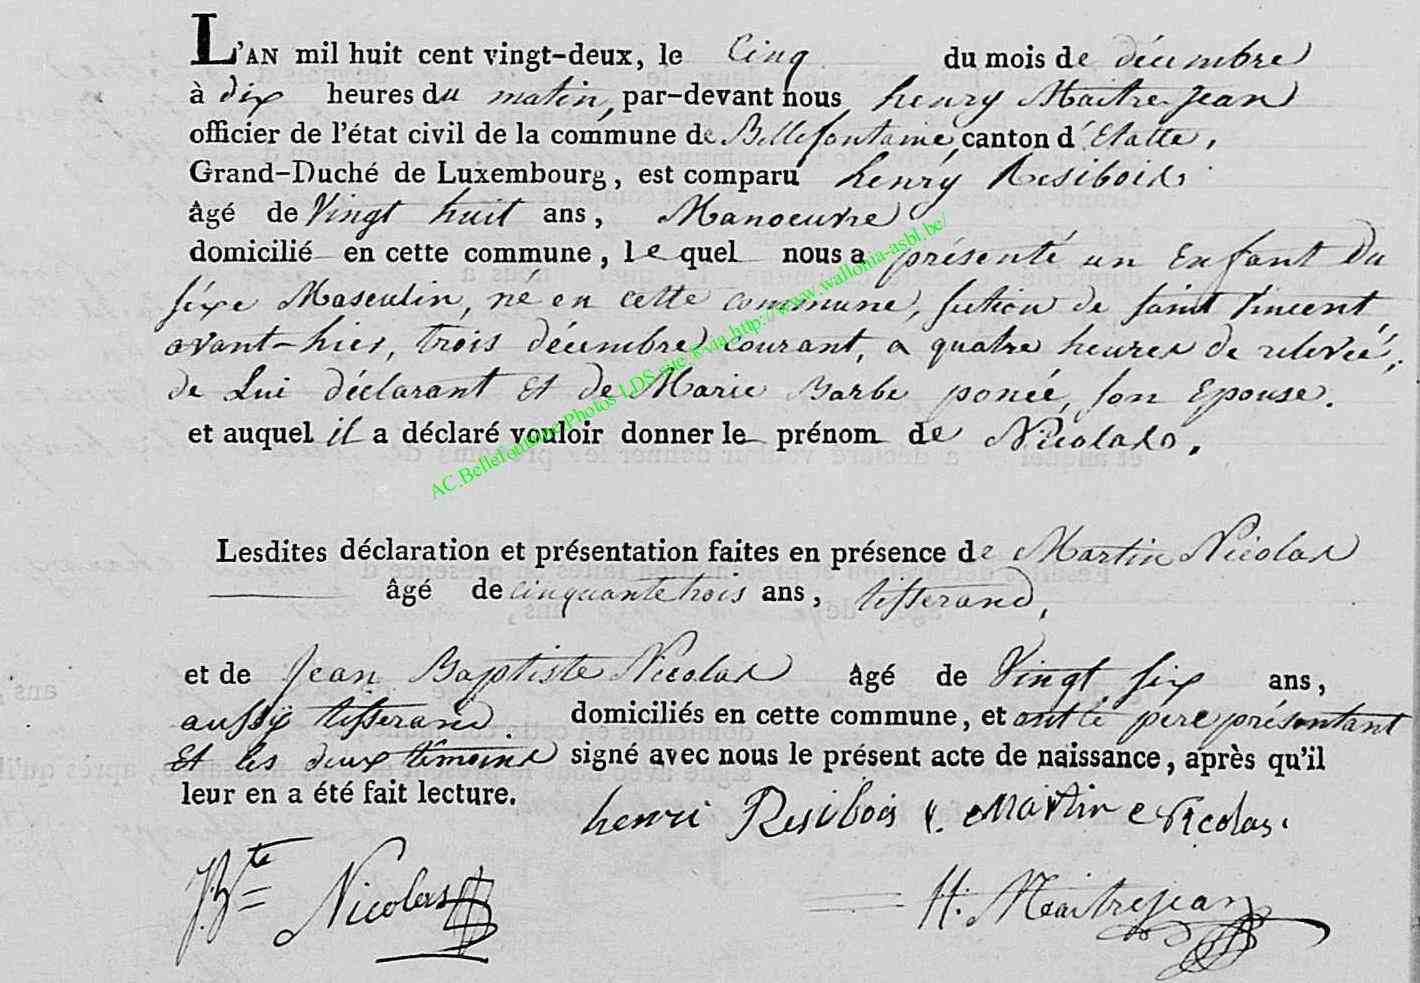 L'AN mil huit cent vingt-deux, le Cinq du mois de décembre
à dix heures du matin, par-devant nous henry Maitrejean
officier de l'état civil de la commune de Bellefontaine, canton d'Etalle,
Grand-Duché de Luxembourg, est comparu henry Resibois
âgé de Vingt huit ans, Manoeuvre
domicilié en cette commune, lequel nous a présenté un Enfant Du
séxe Masculin, né en cette commune, section de saint Vincent
avant-hier, trois décembre courant, a quatre heures de relevée,
de Lui déclarant Et de Marie Barbe poncé, son Epouse.
et auquel il a déclaré vouloir donner le prénom de Nicolas.
AC.Bellefontaine Photos LDS site & via http://www.wallonia-asbl.be/
Lesdites déclaration et présentation faites en présence de Martin Nicolas
âgé de cinquante trois ans, tisserand,
et de Jean Baptiste Nicolas âgé de Vingt six ans,
aussÿ tisserand. domiciliés en cette commune, et ont le pere présentant
Et les deux témoins signé avec nous le présent acte de naissance, après qu'il
leur en a été fait lecture.
henri Resibois Martin Nicolas
J. Bte Nicolas
H. Maitrejean